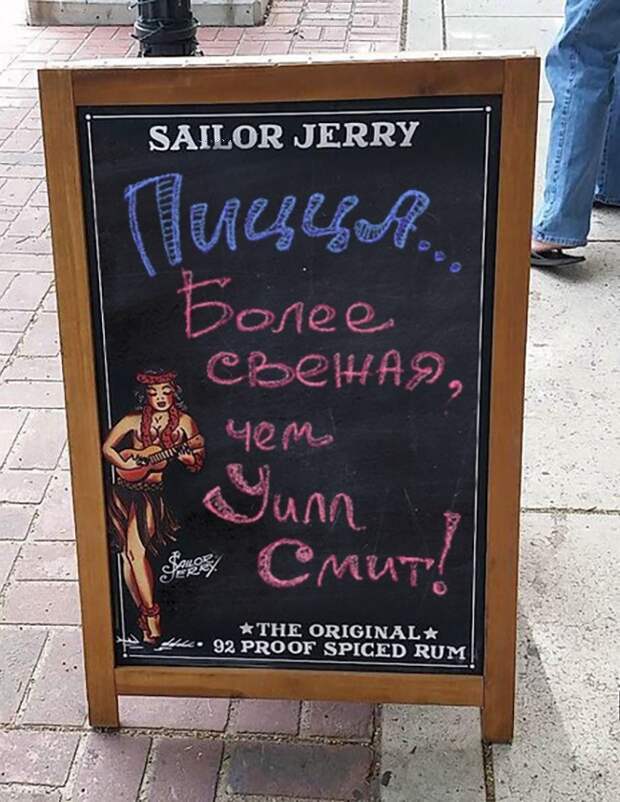 SAILOR JERRY
Пицца...
Более
свежая,
чем
Уилл
Смит!
SAILOR
JERRY
★THE ORIGINAL★
92 PROOF SPICED RUM